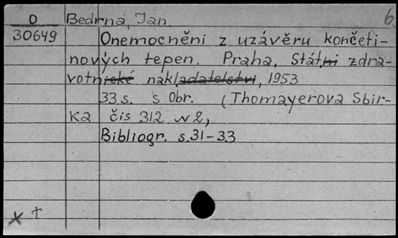 D Bedrna, Jan. 6
30649 Onemocněni z uzávěru končeti-
nových tepen. Praha, Státni zdra-
votnické nakladatelstvi, 1953
33 s. s Obr. (Thomayerova Sbír-
ka čis 312
Bibliogr. s.31-33
x †